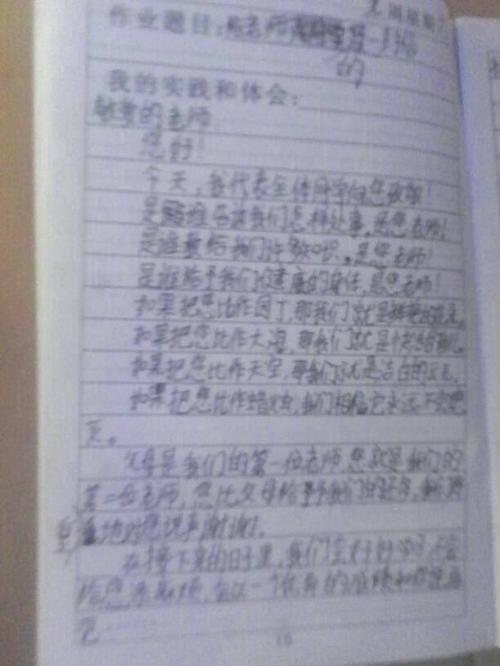 周星期
作业题目:给老师写一
的
我的实践和体会:
敬爱的老师
您好!
今天,我代表全体同学向您致敬!
是谁告诉我们怎样处事,是您老师!
是谁教给我们许多知识,是您老师!
是谁给予我们健康的身体,是您老师!
如果把您比作园丁,那我们就是
如果把您比作大海,那我们就是
如果把您比作天空,那我们就是洁白的云儿,
如果把您比作蜡烛,我们相信它永远不会熄
灭。
父母是我们的第一位老师,您就是我们的
第二位老师,您比父母给予我们的还多,我们
地对您说声谢谢。
在接下来的日子里,我们会好好学习,不会
给您添麻烦,会以一个优秀的成绩
10